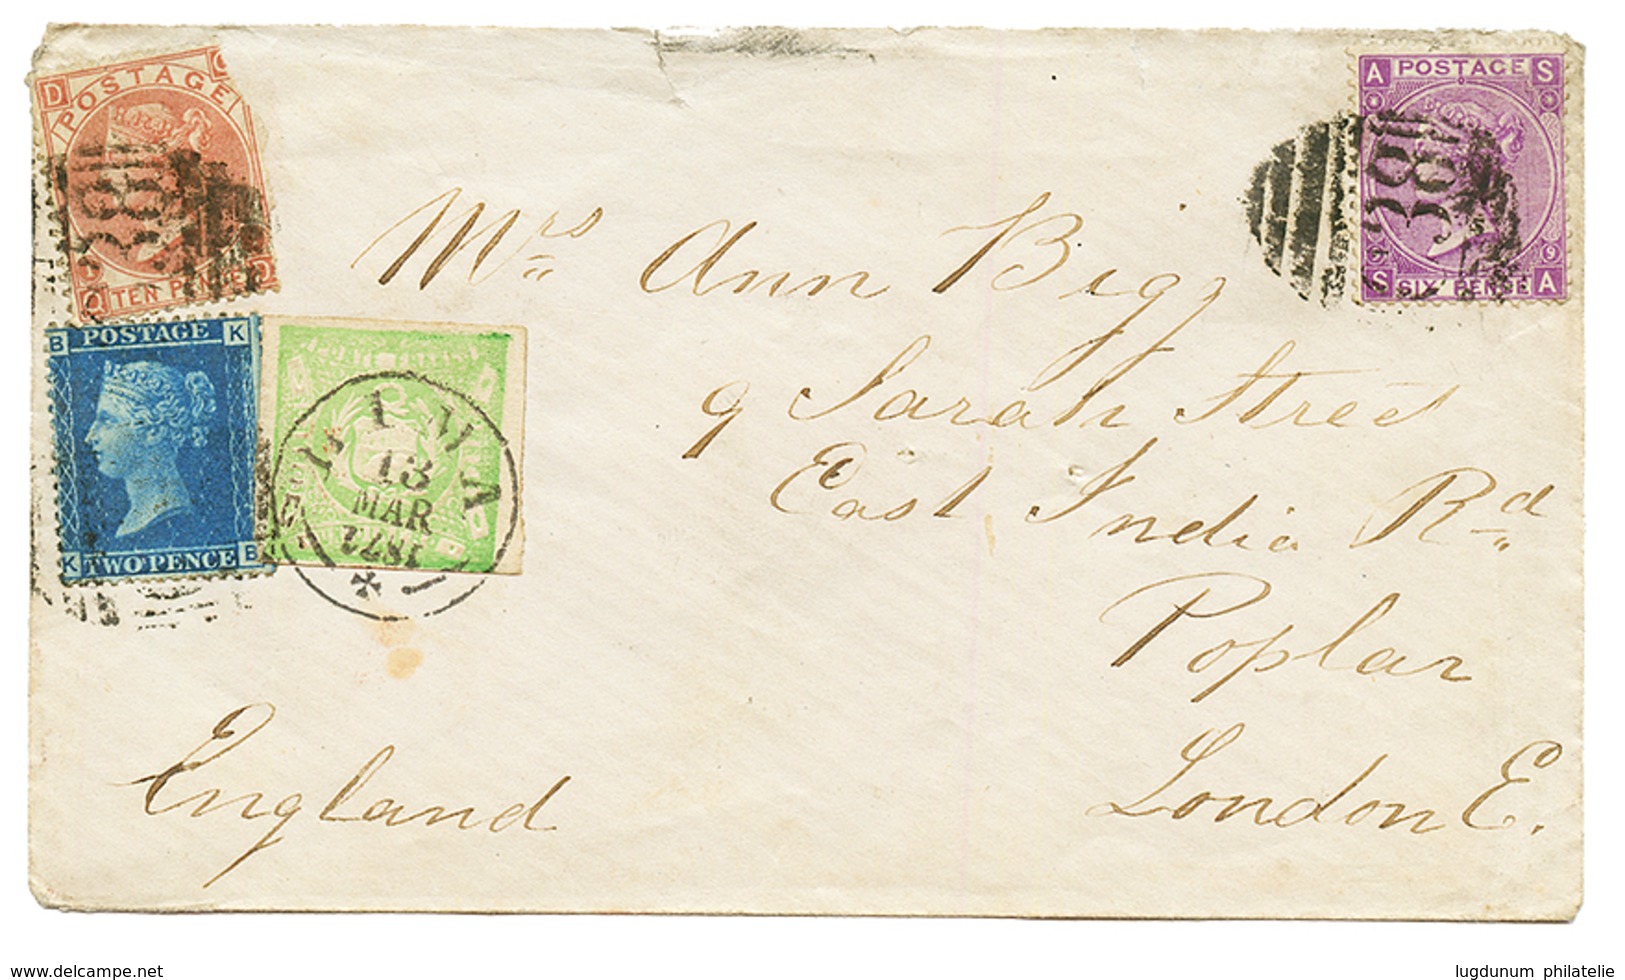 D C
POSTAGE
C38
TEN PENCE
D
A POSTAGE S
C38
9
S SIX PENCE A
B POSTAGE K
K TWO PENCE B
LIMA
13
MAR
1872
Mrs Ann Bigg
9 Sarah Street
East India Rd
Poplar
London E.
England
delcampe.net
lugdunum philatelie